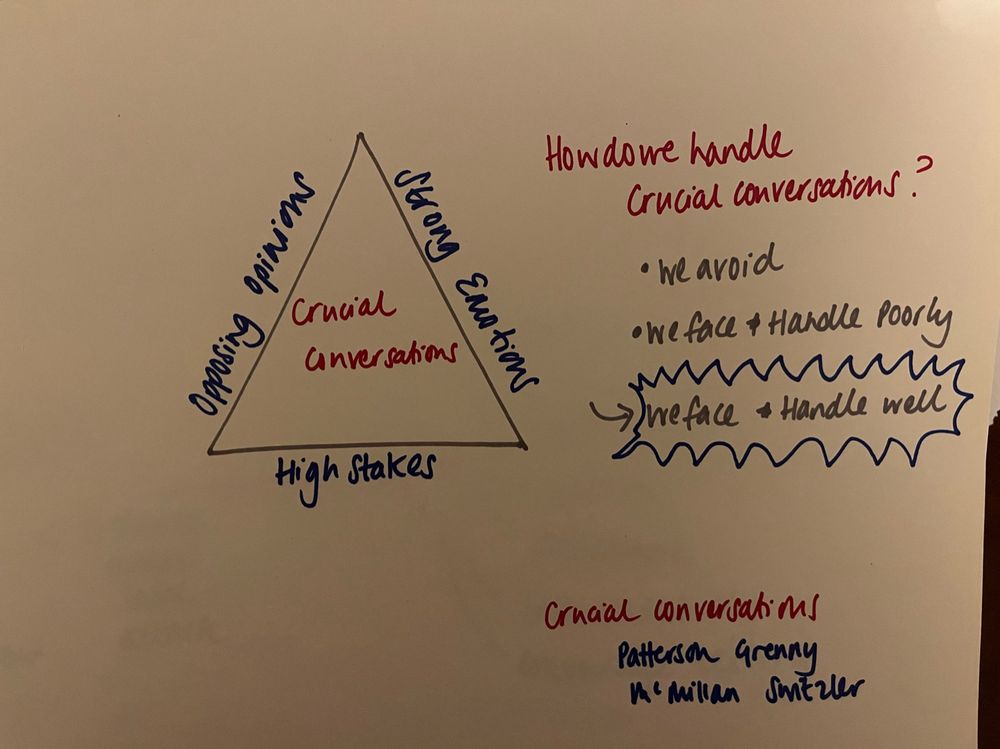 Opposing Opinions
Strong Emotions
Crucial
conversations
High Stakes
How do we handle
Crucial conversations?
• We avoid
• We face & Handle Poorly
→ We face & Handle well
Crucial conversations
Patterson Grenny
McMillan Switzler